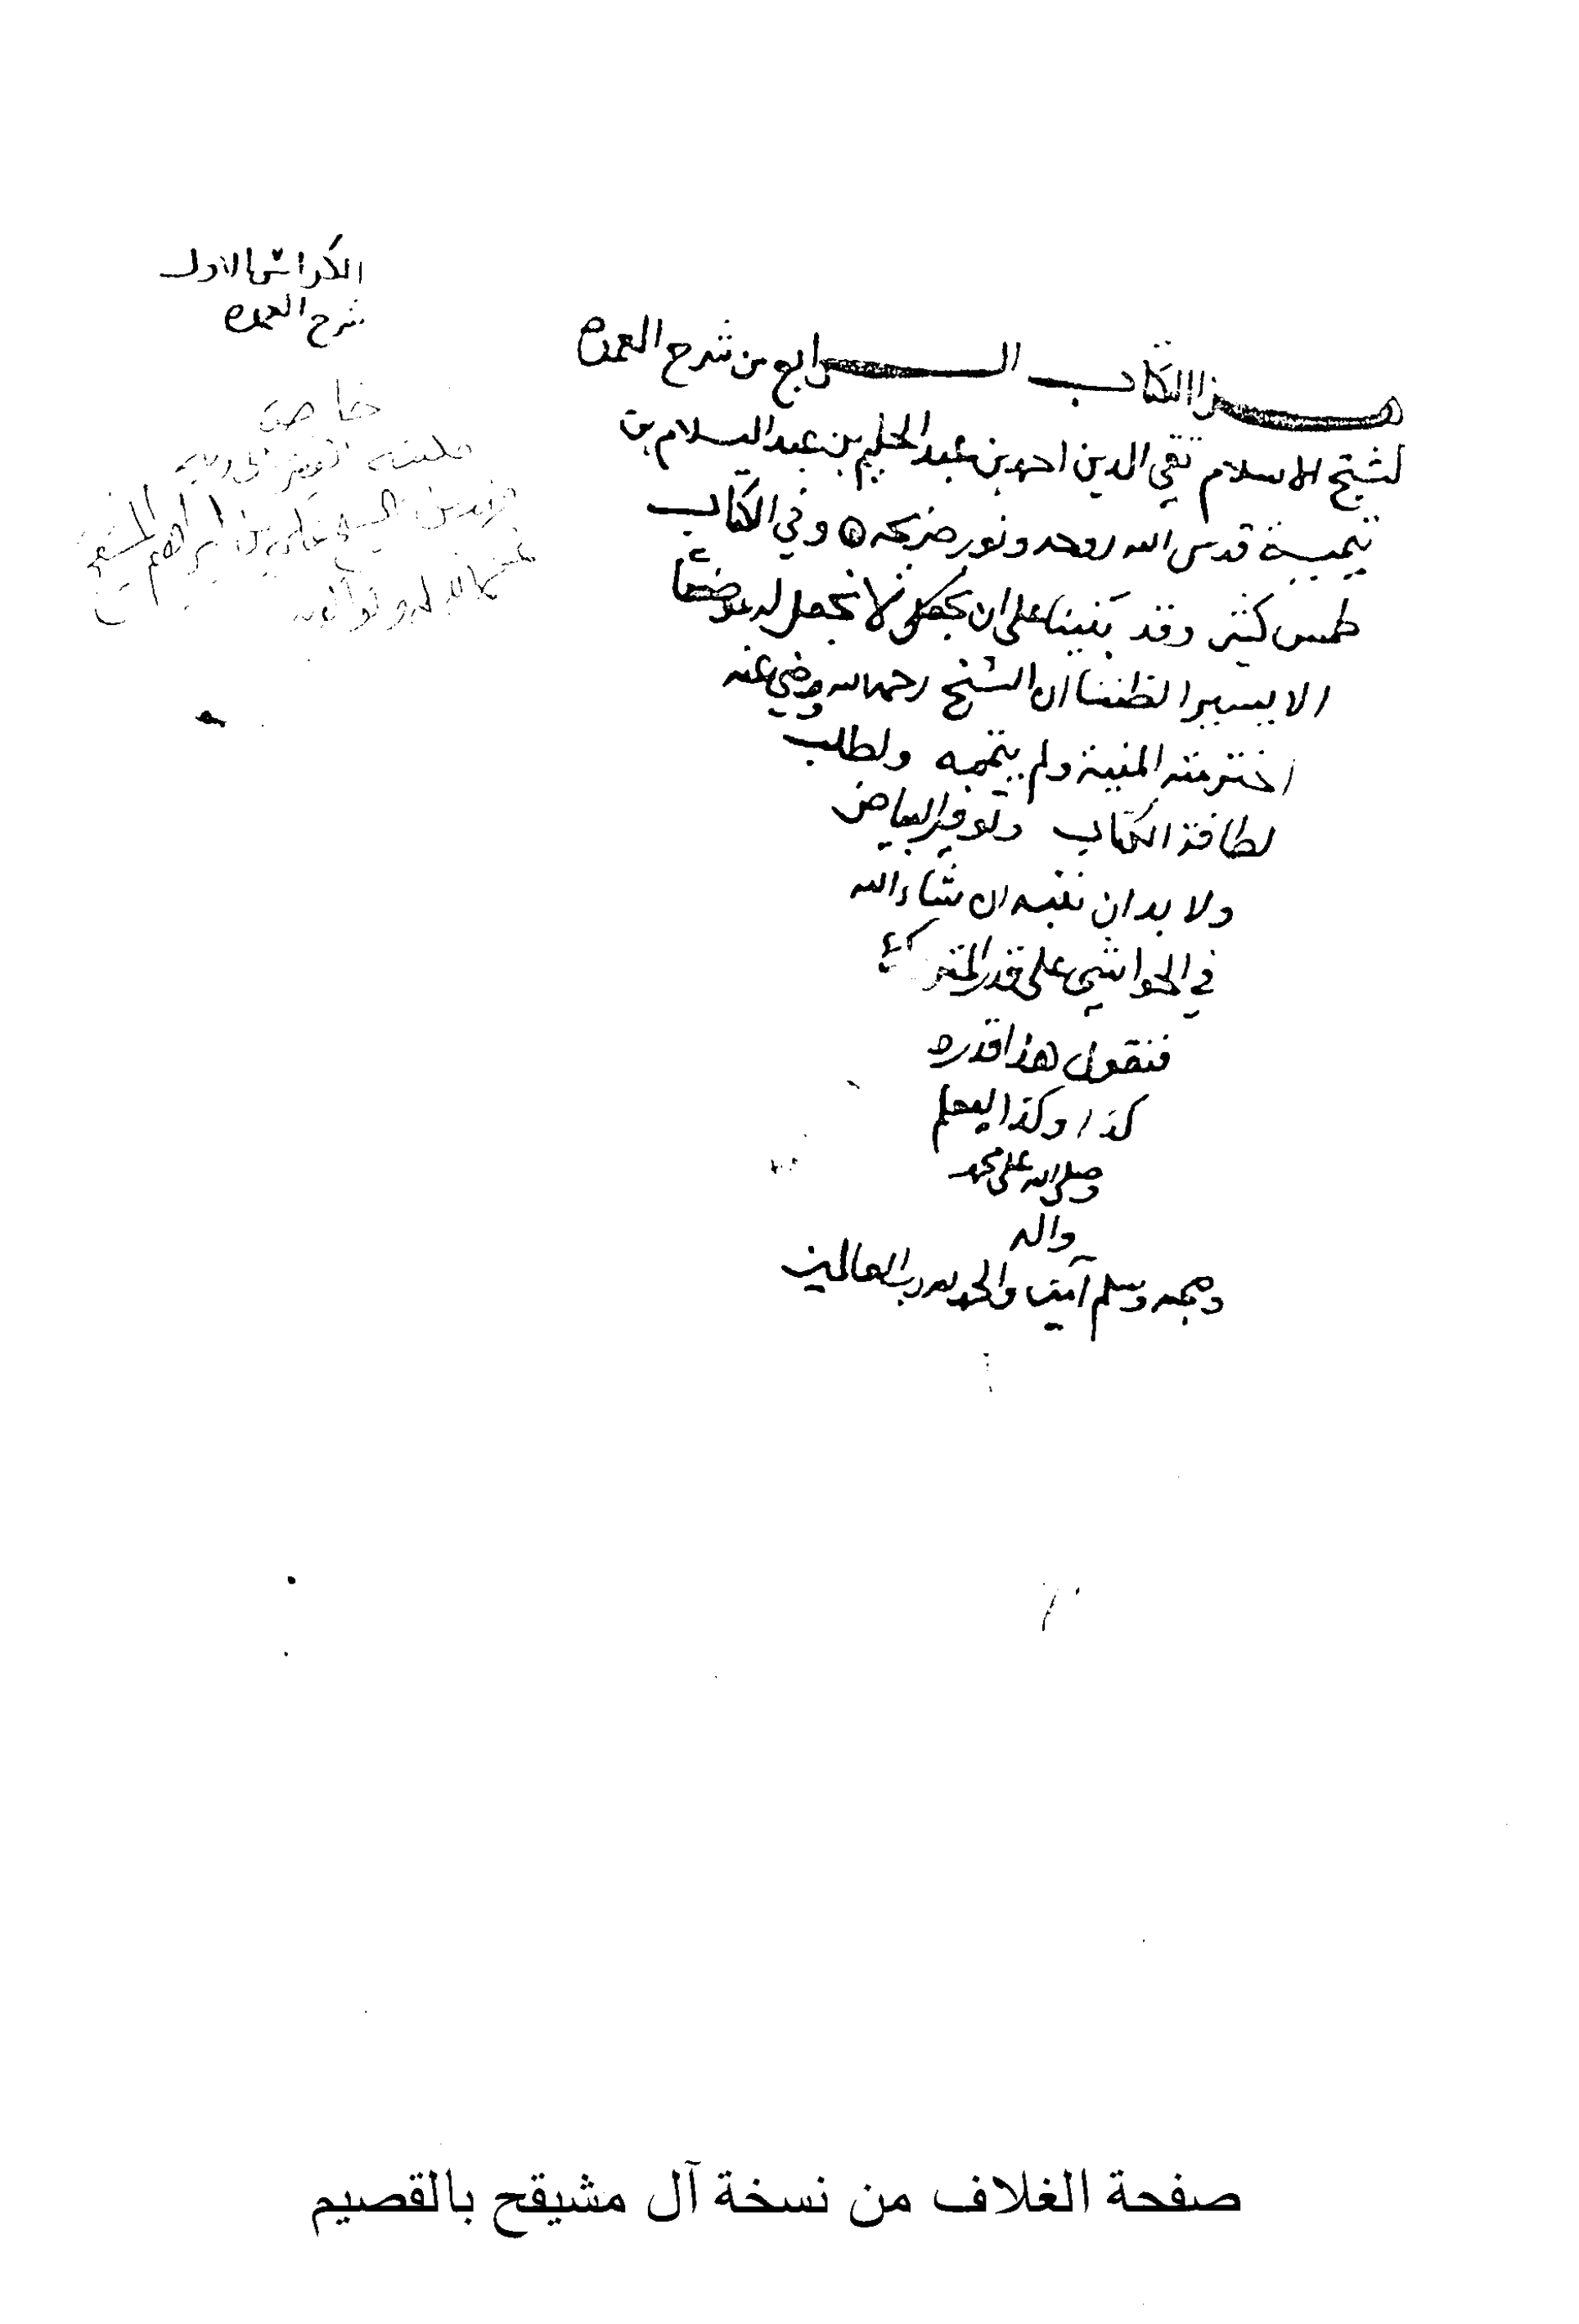 الكراس الاول
شرح العمده
خاص
فهد بن علي بن ابراهيم
هذا الكتاب الرابع من شرح العمده
لشيخ الاسلام تقي الدين احمد بن عبد الحليم بن عبد السلام بن
تيمية قدس الله روحه ونور ضريحه وفي الكتاب
طمس كثير وقد بنينا على ان لا نجعل له
الا يسيرا لظننا ان الشيخ رحمه الله ورضي عنه
اخترمته المنية ولم يتممه ولطلب
لطافة الكتاب وتوفير البياض
ولا بد ان ننبه ان شاء الله
في الحواشي على قدر
فنقول هذا قدره
كذا وكذا ليعلم
وصلى الله على محمد
واله
وصحبه وسلم آمين والحمد لله رب العالمين
صفحة الغلاف من نسخة آل مشيقح بالقصيم